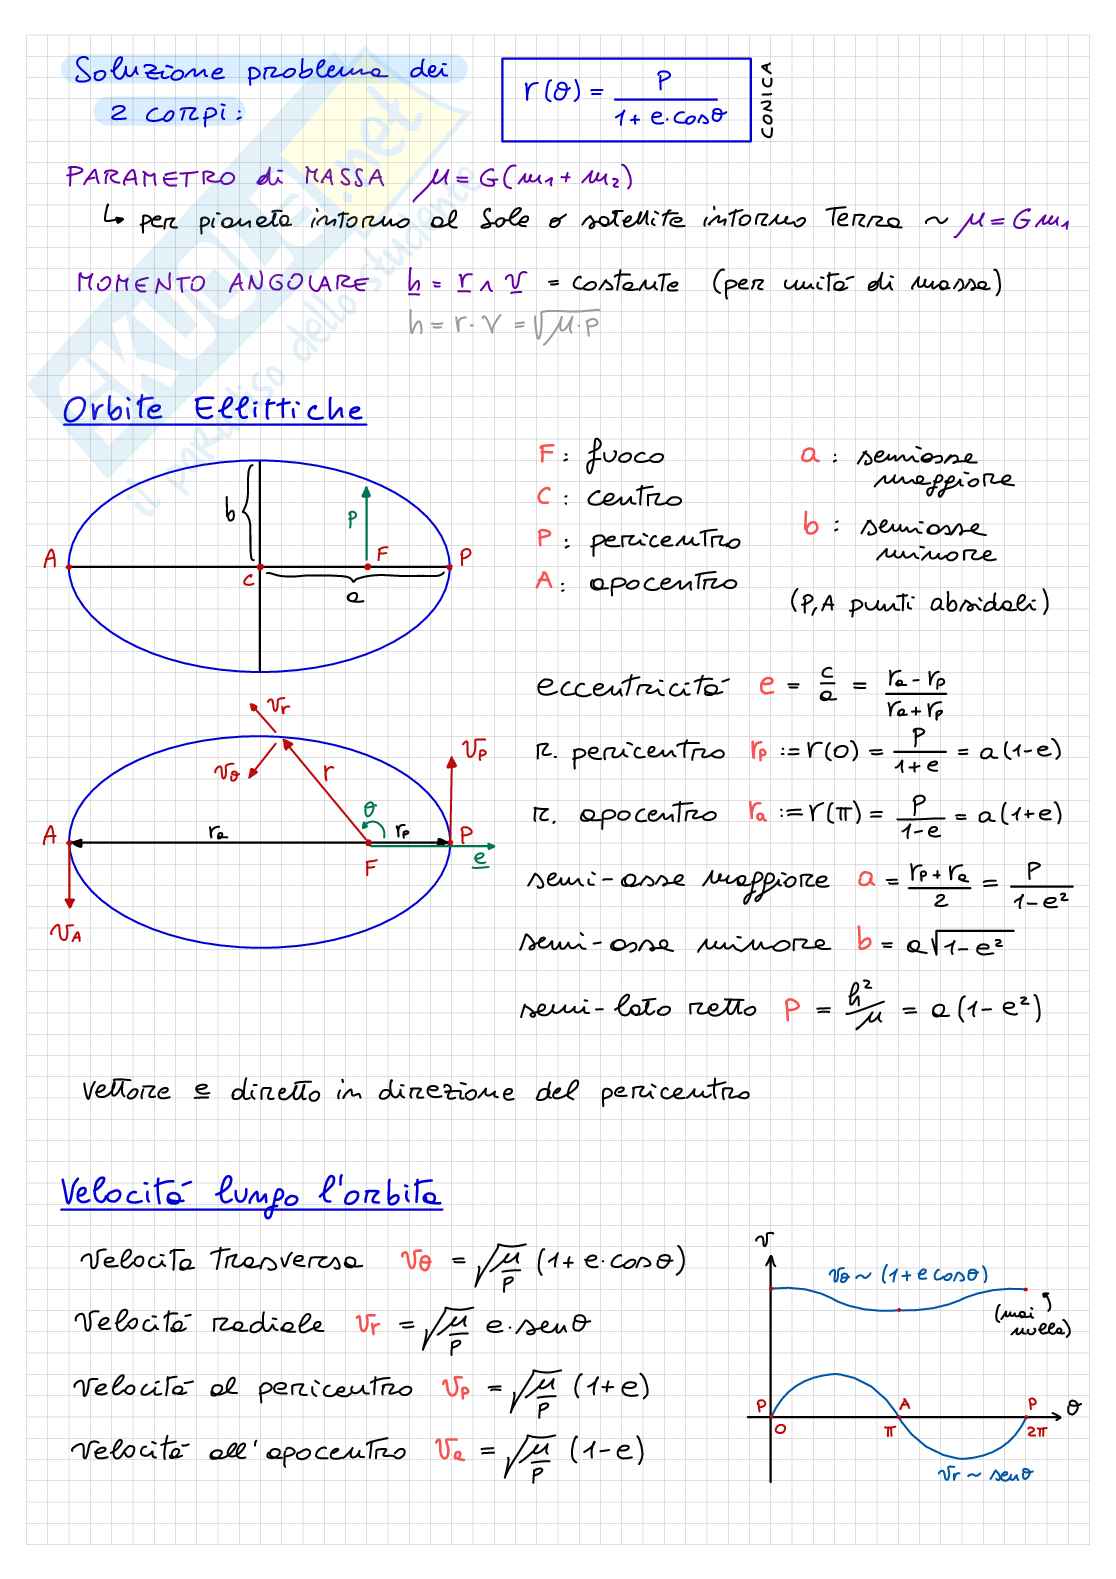 Soluzione problema dei
2 corpi:
r(θ) = p / (1 + e·cosθ)
CONICA
PARAMETRO di MASSA μ = G(m1 + m2)
↳ per pianeta intorno al Sole o satellite intorno Terra ~ μ = Gm1
MOMENTO ANGOLARE h = r ∧ v = costante (per unitá di massa)
h = r·v = √μ·p
SKUOLA.net
il paradiso dello studente
Orbite Ellittiche
b
p
A
C
F
P
a
F: fuoco
C: centro
P: pericentro
A: apocentro
a: semiasse
maggiore
b: semiasse
minore
(P,A punti absidali)
eccentricitá e = c/a = (ra - rp)/(ra + rp)
r. pericentro rp := r(0) = p/(1+e) = a(1-e)
r. apocentro ra := r(π) = p/(1-e) = a(1+e)
semi-asse maggiore a = (rp + ra)/2 = p/(1-e²)
semi-asse minore b = a√1-e²
semi-lato retto p = h²/μ = a(1-e²)
vr
vθ
r
vP
θ
A
ra
rp
P
F
e
vA
vettore e diretto in direzione del pericentro
Velocitá lungo l'orbita
velocita trasversa vθ = √μ/p (1 + e·cosθ)
velocitá radiale vr = √μ/p e·senθ
velocitá al pericentro vp = √μ/p (1+e)
velocitá all'apocentro va = √μ/p (1-e)
v
vθ ~ (1+e cosθ)
(mai
nulla)
P
A
P
θ
0
π
2π
vr ~ senθ